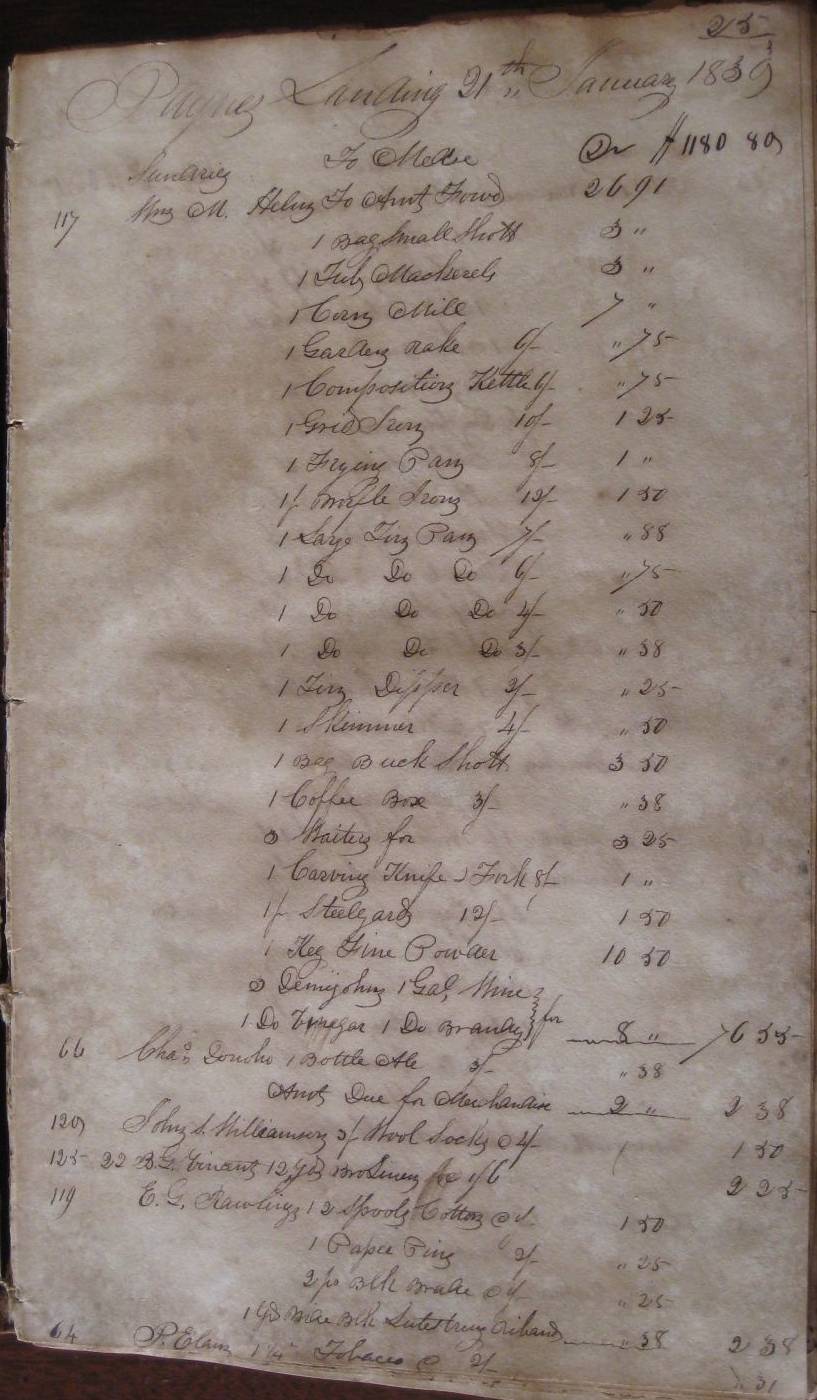 25
Paynes Landing 21th January 1839
Sundries To Mdse Dr $1180 89
117 Mrs M. Helm To Amt Forwd 26 91
1 Bag Small Shott 3 "
1 Tub Mackerels 3 "
1 Corn Mill 7 "
1 Garden Rake 6/- " 75
1 Composition Kettle 6/- " 75
1 Grid Iron 10/- 1 25
1 Frying Pan 8/- 1 "
1 Iron 12/- 1 50
1 Large Tin Pan 7/- " 88
1 Do Do Do 6/- " 75
1 Do Do Do 4/- " 50
1 Do Do Do 3/- " 38
1 Tin Dipper 2/- " 25
1 Skimmer 4/- " 50
1 Bag Buck Shott 3 50
1 Coffee Box 3/- " 38
3 Waiters for 3 25
1 Carving Knife & Fork 8/- 1 "
1 Steelyards 12/- 1 50
1 Keg Fine Powder 10 50
3 Demijohns 1 Gal. Wine
1 Do Vinegar 1 Do Brandy } for 8 " 76 55
66 Chas Donoho 1 Bottle Ale 3/- " 38
Amt Due for Merchandise 2 " 2 38
120 John S. Williamson 3/ Wool Socks @ 4/- 1 50
125 22 B.G. Vincent 12 yds 1/6 2 25
119 E. G. Rawlings 12 Spools Cotton @ 1/- 1 50
1 Paper Pins 2/- " 25
2 ps Blk Braid @ 1/- " 25
1 yd Blk Lutestring Riband " 38 2 38
64 P. Elam 1 1/4 Tobacco @ 2/- 31